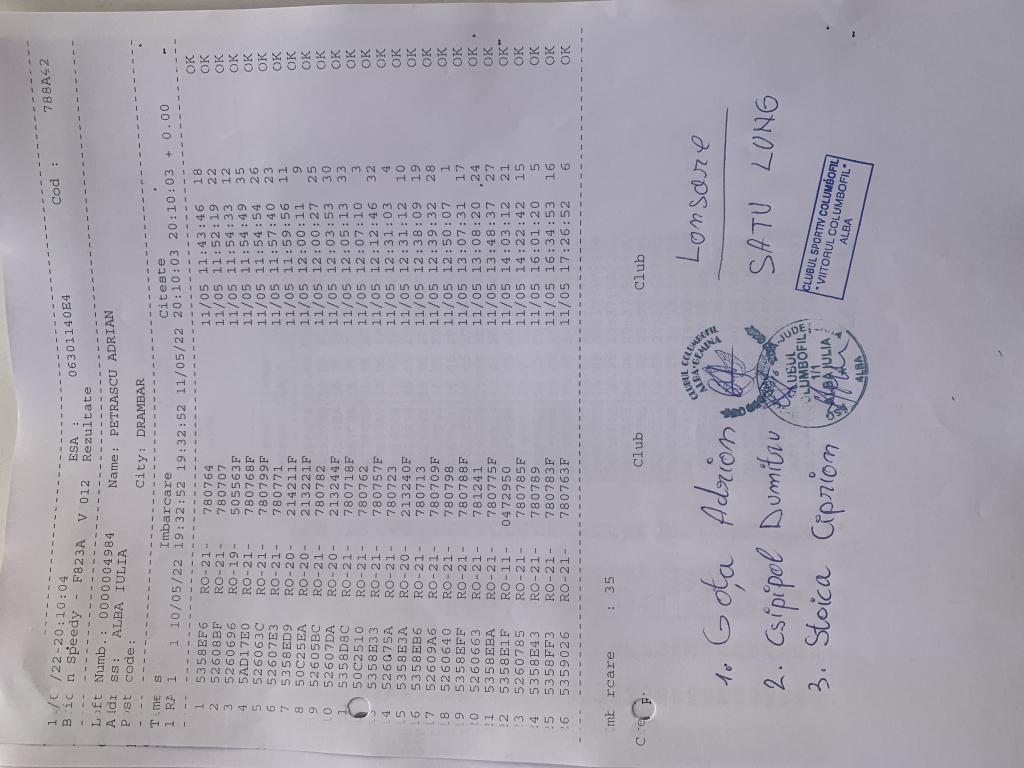 /22-20:10:04
n Speedy - F823A V 012 ESA : 06301140E4 Cod : 788A42
Rezultate
Loft Numb.: 0000004984 Name: PETRASCU ADRIAN
ALBA IULIA
code: City: DRAMBAR
Imbarcare Citeste
1 1 10/05/22 19:32:52 19:32:52 11/05/22 20:10:03 20:10:03 + 0.00
1 5358EF6 RO-21- 780764 11/05 11:43:46 18 OK
2 52608BF RO-21- 780707 11/05 11:52:19 22 OK
3 5260696 RO-19- 505563F 11/05 11:54:33 12 OK
4 5AD17E0 RO-21- 780768F 11/05 11:54:49 35 OK
5 526063C RO-21- 780799F 11/05 11:54:54 26 OK
6 52607E3 RO-21- 780771 11/05 11:57:40 23 OK
7 5358ED9 RO-20- 214211F 11/05 11:59:56 11 OK
8 50C25EA RO-20- 213221F 11/05 12:00:11 9 OK
9 52605BC RO-21- 780782 11/05 12:00:27 25 OK
52607DA RO-20- 213244F 11/05 12:03:53 30 OK
5358D8C RO-21- 780718F 11/05 12:05:13 33 OK
50C2510 RO-21- 780762 11/05 12:07:10 3 OK
5358E33 RO-21- 780757F 11/05 12:12:46 32 OK
RO-21- 780723 11/05 12:31:03 4 OK
5358E3A RO-20- 213240F 11/05 12:31:12 10 OK
5358EB6 RO-21- 780713 11/05 12:38:09 19 OK
52609A6 RO-21- 780709F 11/05 12:39:32 28 OK
5260640 RO-21- 780798 11/05 12:50:07 1 OK
5358EFF RO-21- 780788F 11/05 13:07:31 17 OK
5260663 RO-21- 781241 11/05 13:08:20 24 OK
5358EBA RO-21- 780775F 11/05 13:48:37 27 OK
5358E1F RO-11- 0472950 11/05 14:03:12 21 OK
5260785 RO-21- 780785F 11/05 14:22:42 15 OK
5358E43 RO-21- 780789 11/05 16:01:20 5 OK
5358FF3 RO-21- 780783F 11/05 16:34:53 16 OK
5359026 RO-21- 780763F 11/05 17:26:52 6 OK
rcare : 35
Club Club
Lansare
SATU LUNG
1. Goța Adrion
2. Csipipol Dumitru
3. Stoica Ciprion
CLUBUL COLUMBOFIL
ALBA-GEMINA
ALBA IULIA
ALBA
CLUBUL SPORTIV COLUMBOFIL
"VIITORUL COLUMBOFIL"
ALBA